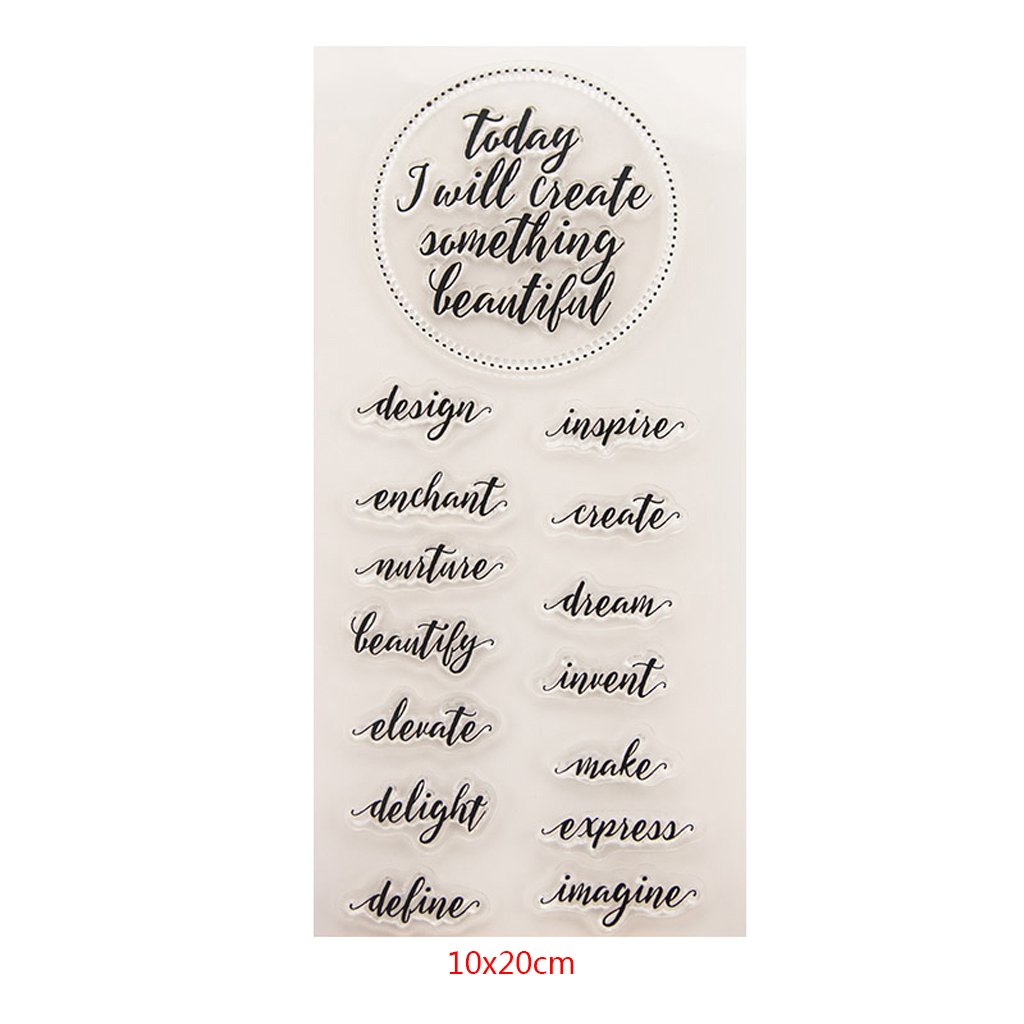 Today
I will create
something
beautiful
design
enchant
nurture
beautify
elevate
delight
define
inspire
create
dream
invent
make
express
imagine
10x20cm